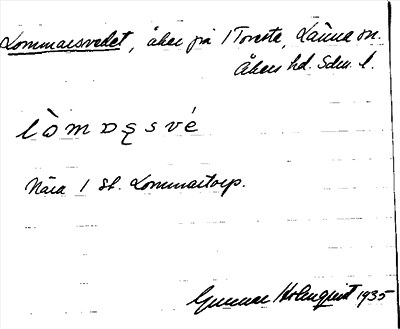 Lommarsvedet, åker på 1 Torsta, Länna sn.
Åkers hd. Sdm. l.
lòmɒʂsvé
Nära 1 st. Lommartorp.
Gunnar Holmquist 1935